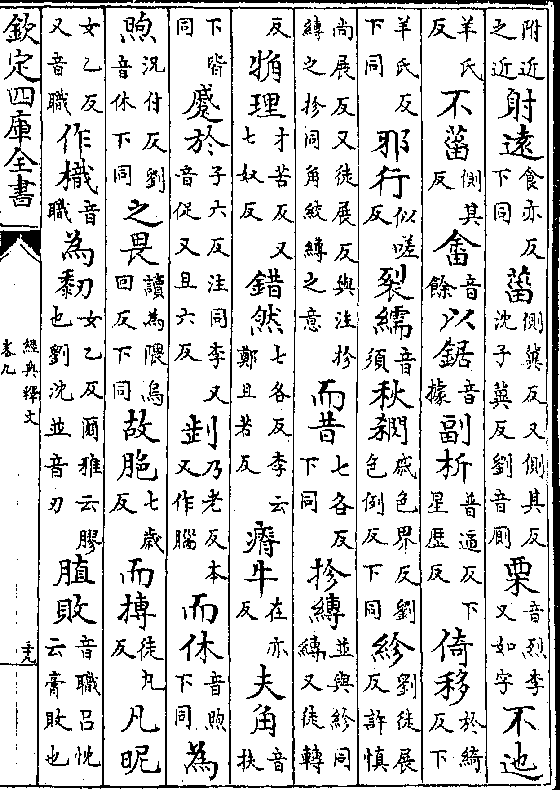 附近之近射遠食亦反下同菑側冀反又側其反沈子冀反劉音厠栗音烈李又如字不迆
羊氏反不菑側其反畬音餘以鋸音據副析普逼反下星歴反倚移於綺反下
羊氏反下同邪行似嗟反裂繻音須秋閷戚色界反劉色倒反下同紾劉徒展反許慎
尚展反又徒展反與注抮縳之抮同角絞縳之意而昔七各反下同抮縳並與紾同縳又徒轉
反觕理才苦反又七奴反錯然七各反李云鄭且若反瘠牛在亦反夫角音扶
下皆同蹙於子六反注同李又音促又且六反㓥乃老反本又作腦而休音煦下同為
煦況付反劉音休下同之畏讀為隈烏回反下同故脃七歲反而摶徒丸反凡昵
女乙反又音職作樴音職為䵑女乙反爾雅云膠也劉沈並音刃䐈敗音職呂忱云膏敗也
欽定四庫全書
經典釋文
卷九